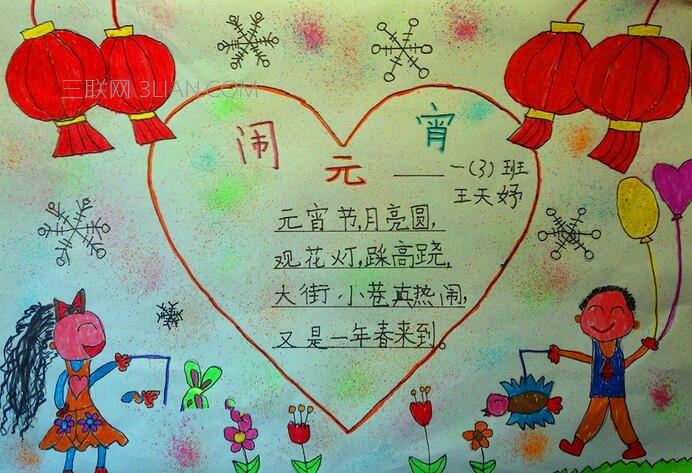 三联网 3LIAN.COM
闹元宵
——一(3)班
王天妤
元宵节,月亮圆,
观花灯,踩高跷,
大街小巷真热闹,
又是一年春来到。